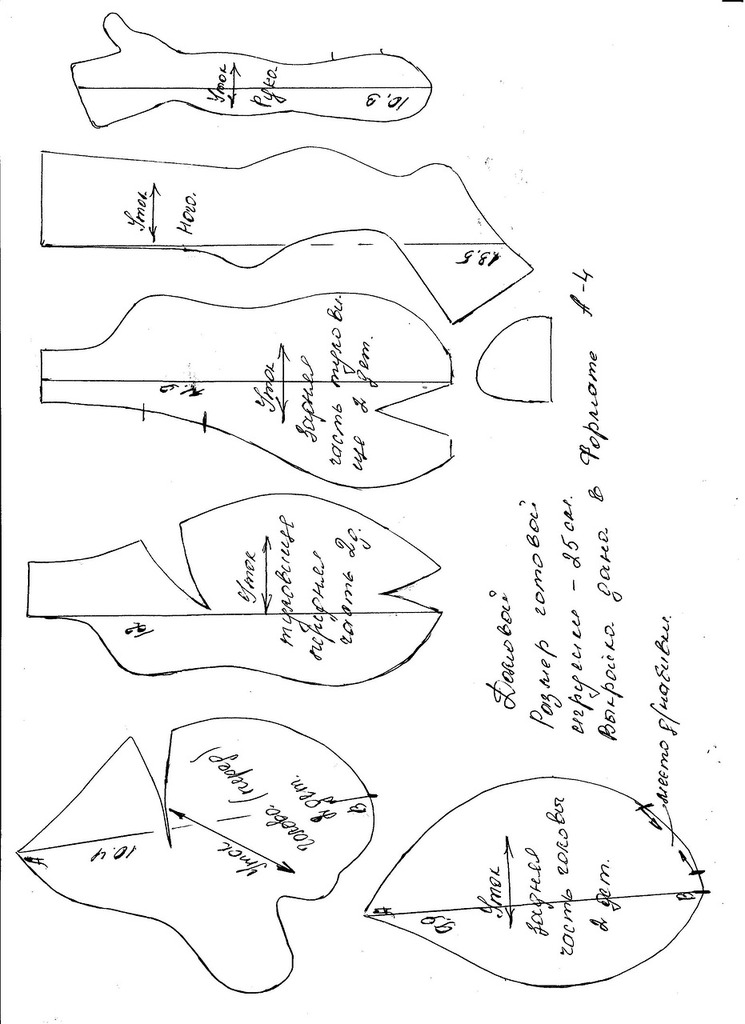 Уток
Рука.
10,9
Уток
Нога.
13,5
Уток
Задняя
часть турови
ще 2 дет.
Уток
туровище
передняя
часть 2д.
12
А
10.4
Уток
голова. (перед)
2 дет.
В
Домовой
Размер готовой
игрушки - 25 см.
Выкройка дана в Формате А-4
А
9,9
Уток
Задняя
часть головы
2 дет.
В
место д/набивки.